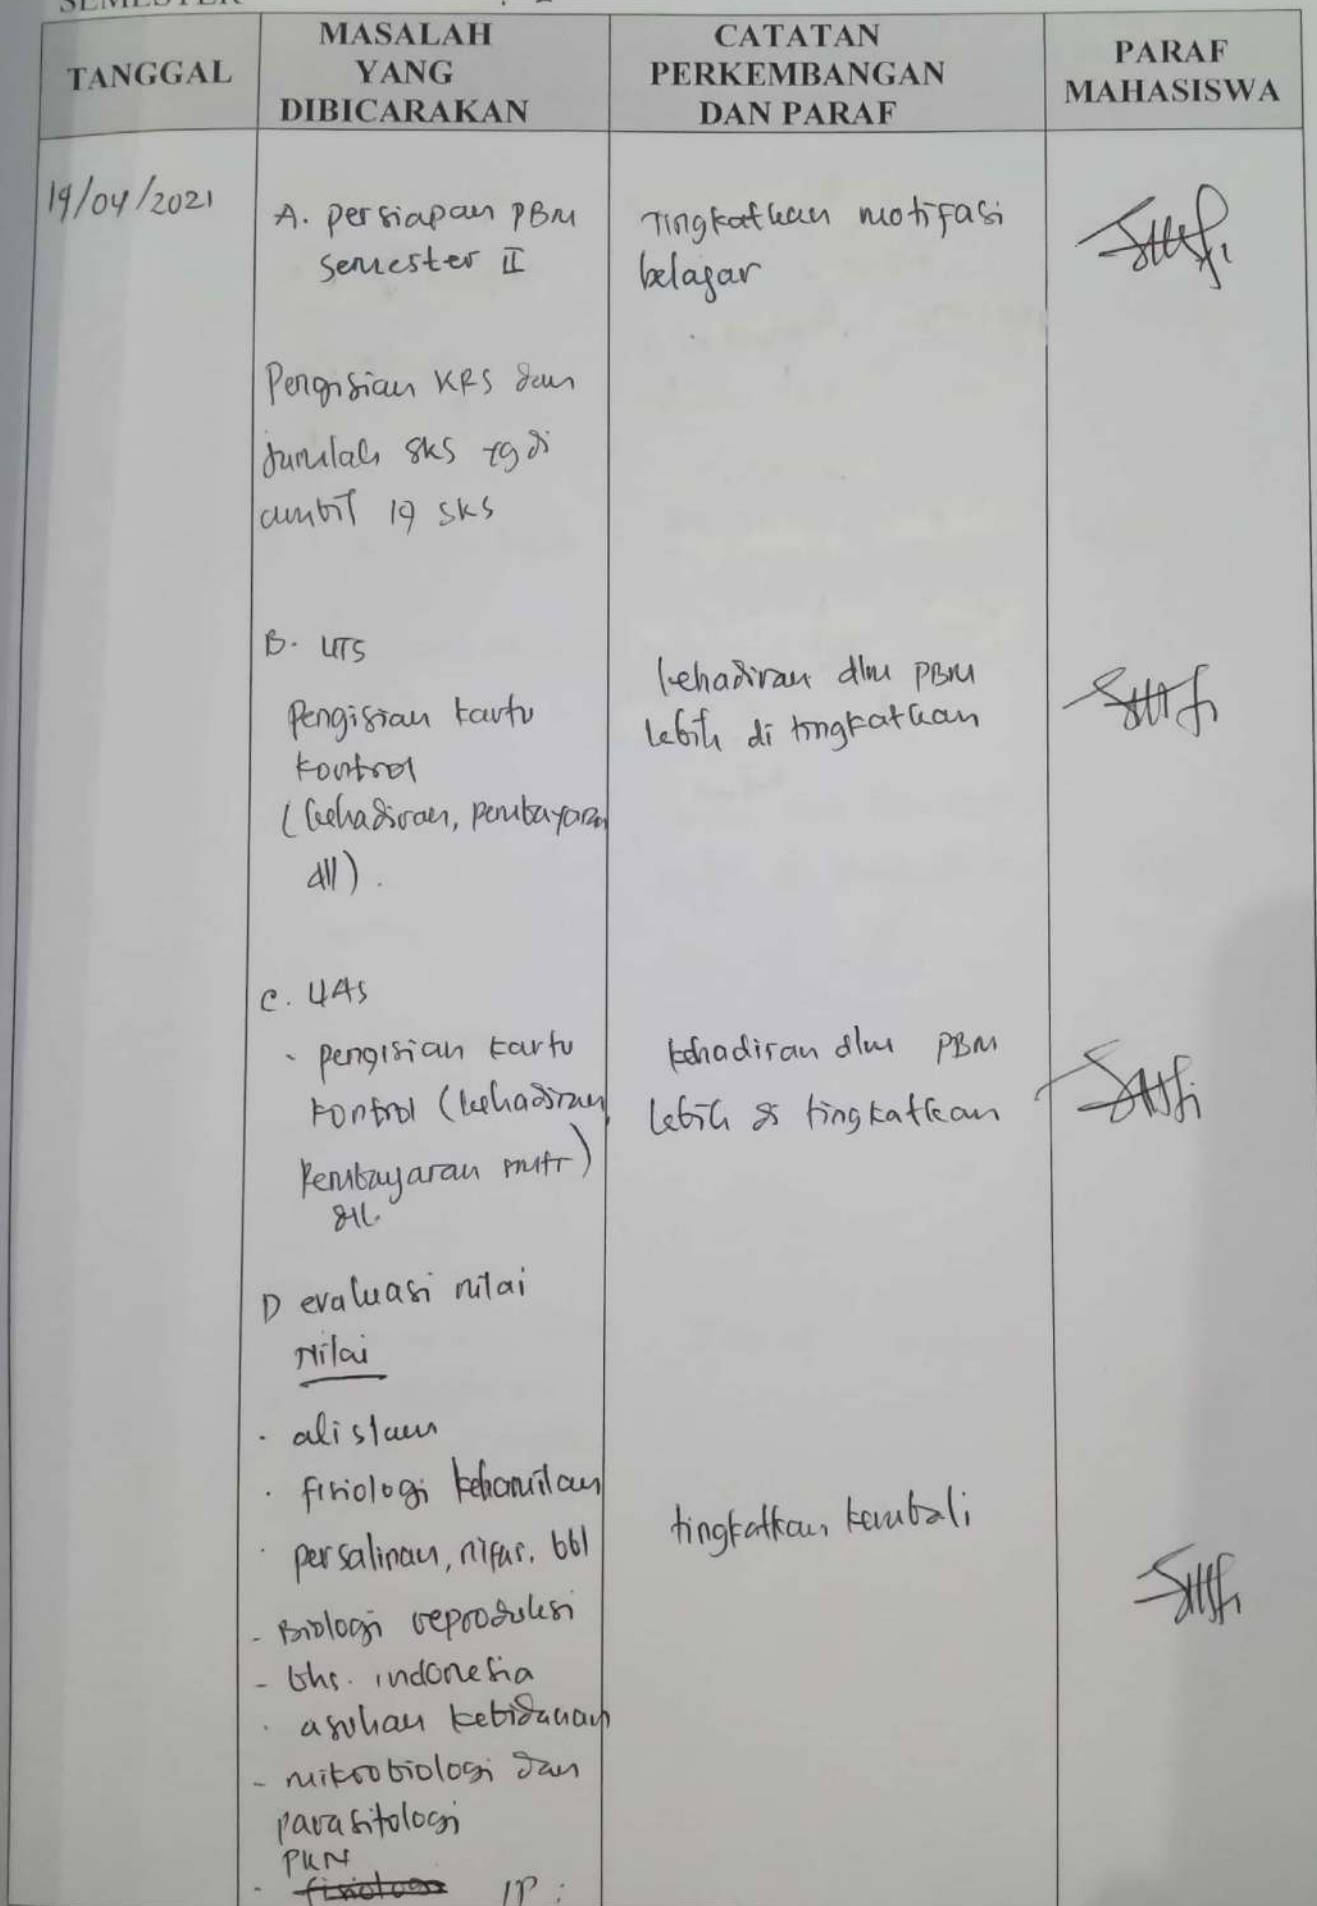 SEMESTER
TANGGAL
MASALAH
YANG
DIBICARAKAN
CATATAN
PERKEMBANGAN
DAN PARAF
PARAF
MAHASISWA
19/04/2021
A. persiapan PBM
semester II
Tingkatkan motifasi
belajar
Pengisian KRS dan
Jumlah SKS yg di
ambil 19 SKS
B. UTS
Pengisian kartu
kontrol
(kehadiran, pembayaran
dll).
kehadiran dlm PBM
lebih di tingkatkan
C. UAS
- pengisian kartu
kontrol (kehadiran,
Pembayaran
dll.
kehadiran dlm PBM
lebih di tingkatkan
D evaluasi nilai
Nilai
. alislam
. fisiologi kehamilan
. persalinan, nifas, bbl
- Biologi reproduksi
- bhs. indonesia
. asuhan kebidanan
- mikrobiologi dan
parasitologi
PKN
- fisiologi IP :
tingkatkan kembali